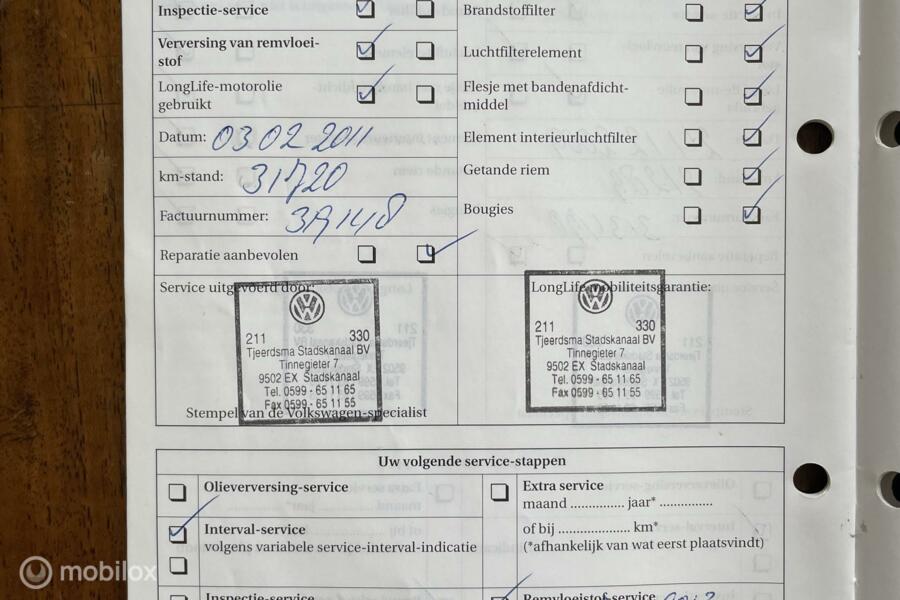 Inspectie-service
Verversing van remvloei-
stof
LongLife-motorolie
gebruikt
Datum: 03.02 2011
km-stand: 31720
Factuurnummer:
Reparatie aanbevolen
Brandstoffilter
Luchtfilterelement
Flesje met bandenafdicht-
middel
Element interieurluchtfilter
Getande riem
Bougies
Service uitgevoerd door:
211 330
Tjeerdsma Stadskanaal BV
Tinnegieter 7
9502 EX Stadskanaal
Tel. 0599 - 65 11 65
Fax 0599 - 65 11 55
Stempel van de Volkswagen-specialist
LongLife mobiliteitsgarantie:
211 330
Tjeerdsma Stadskanaal BV
Tinnegieter 7
9502 EX Stadskanaal
Tel. 0599 - 65 11 65
Fax 0599 - 65 11 55
Uw volgende service-stappen
Olieverversing-service
Interval-service
volgens variabele service-interval-indicatie
Inspectie-service
Extra service
maand .............. jaar* ..............
of bij ................... km*
(*afhankelijk van wat eerst plaatsvindt)
Remvloeistof-service
mobilox